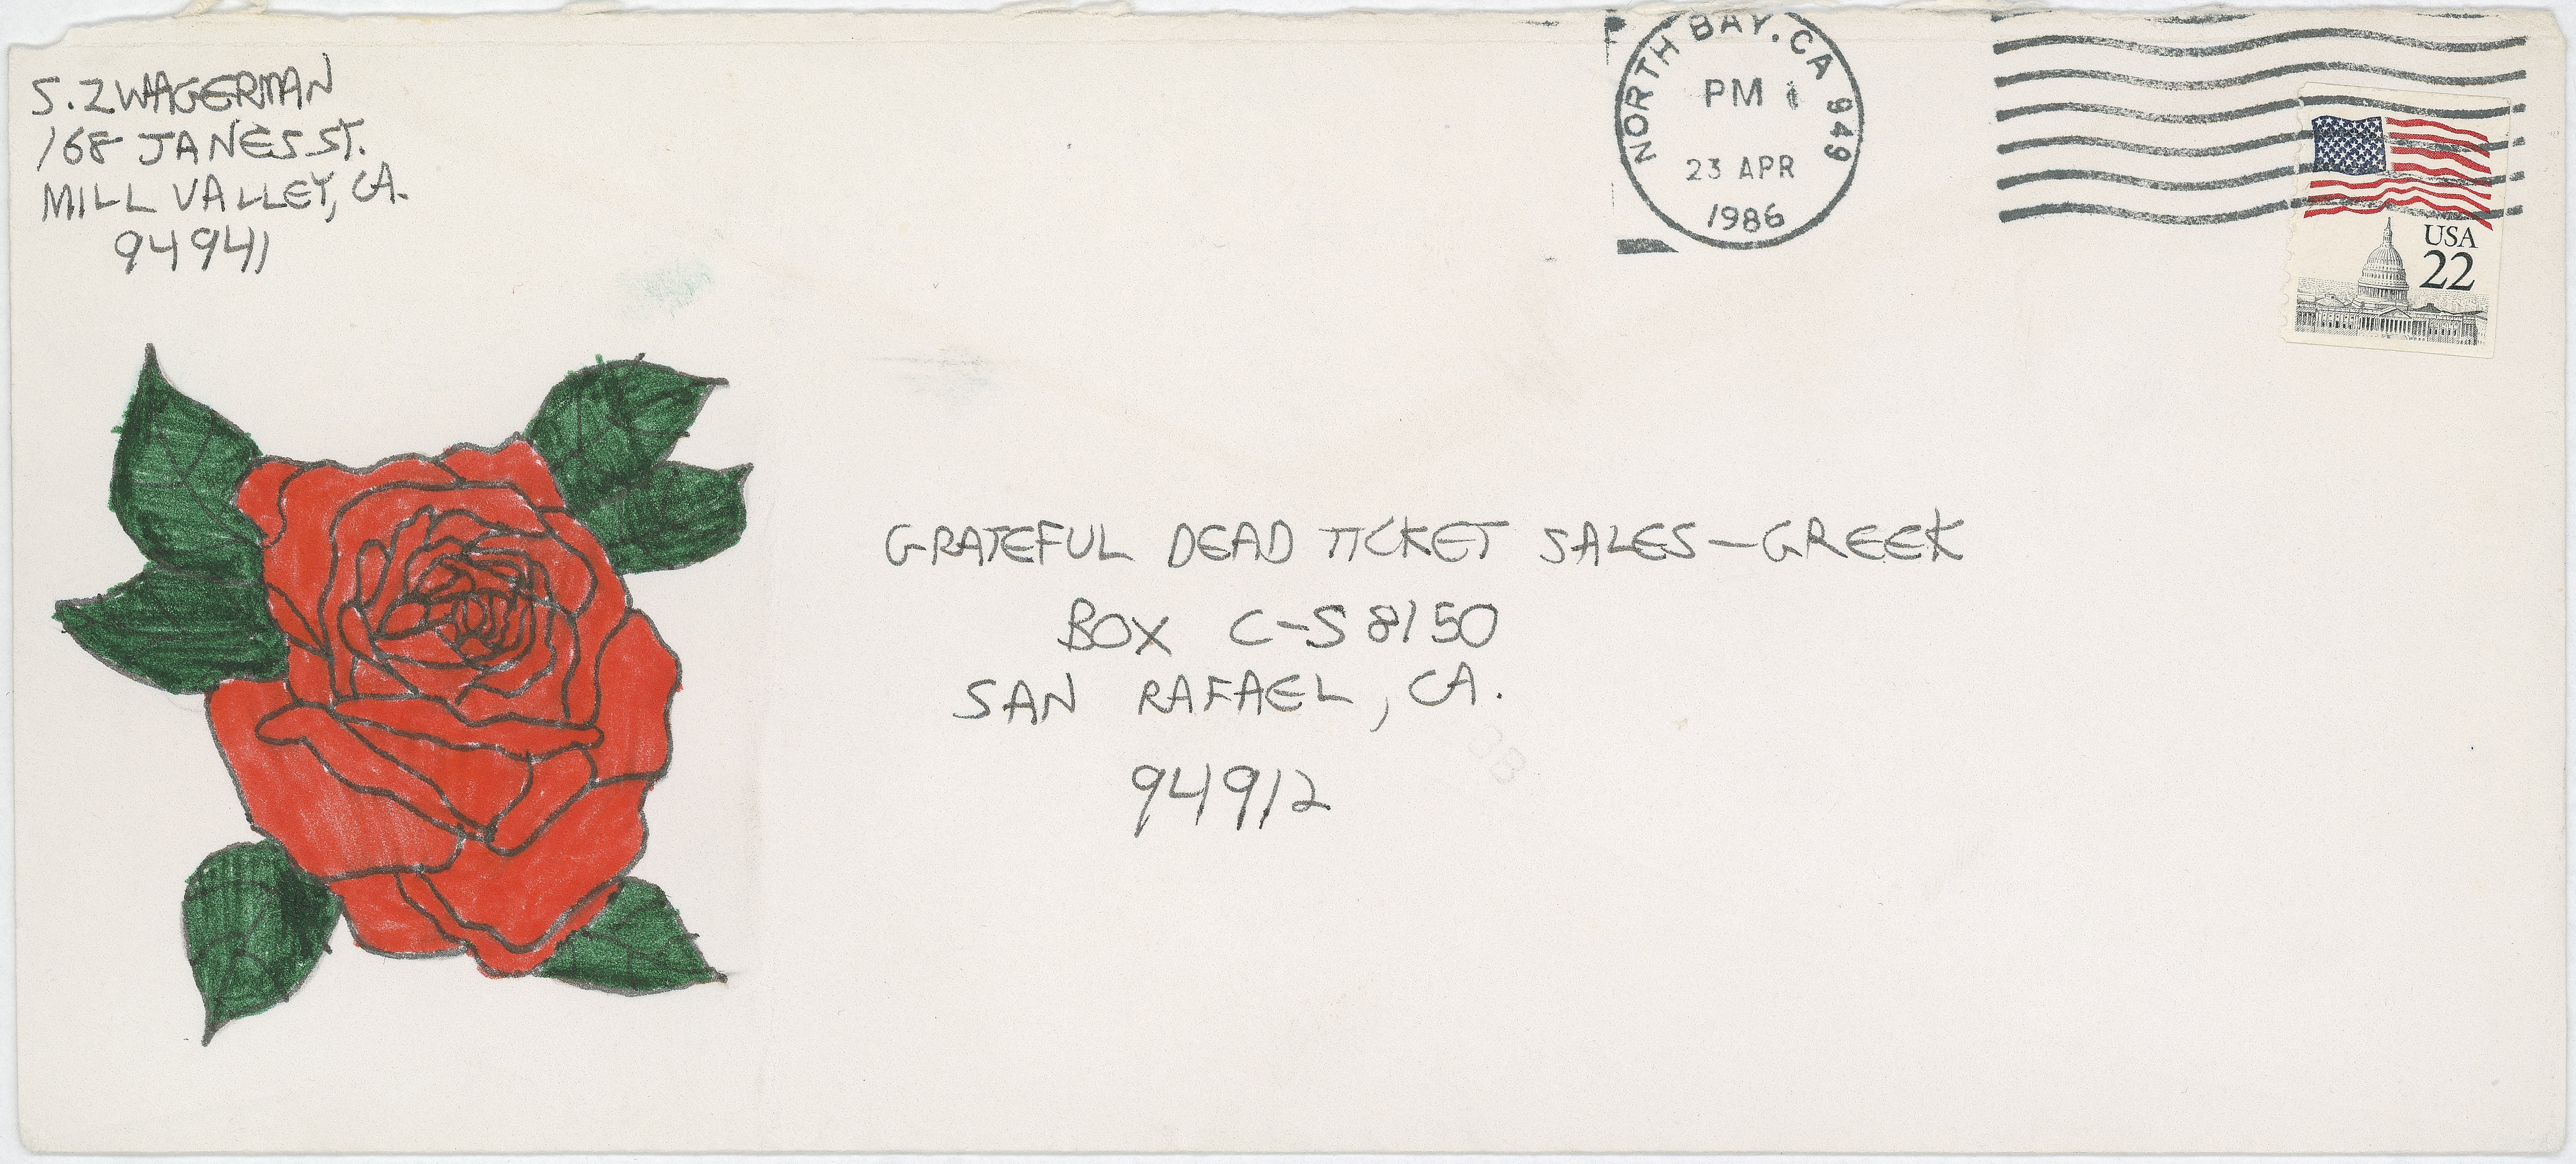 S. ZWAGERMAN
168 JANES ST.
MILL VALLEY, CA.
94941
NORTH BAY, CA 949
PM
23 APR
1986
USA
22
GRATEFUL DEAD TICKET SALES—GREEK
BOX C-S 8150
SAN RAFAEL, CA.
94912